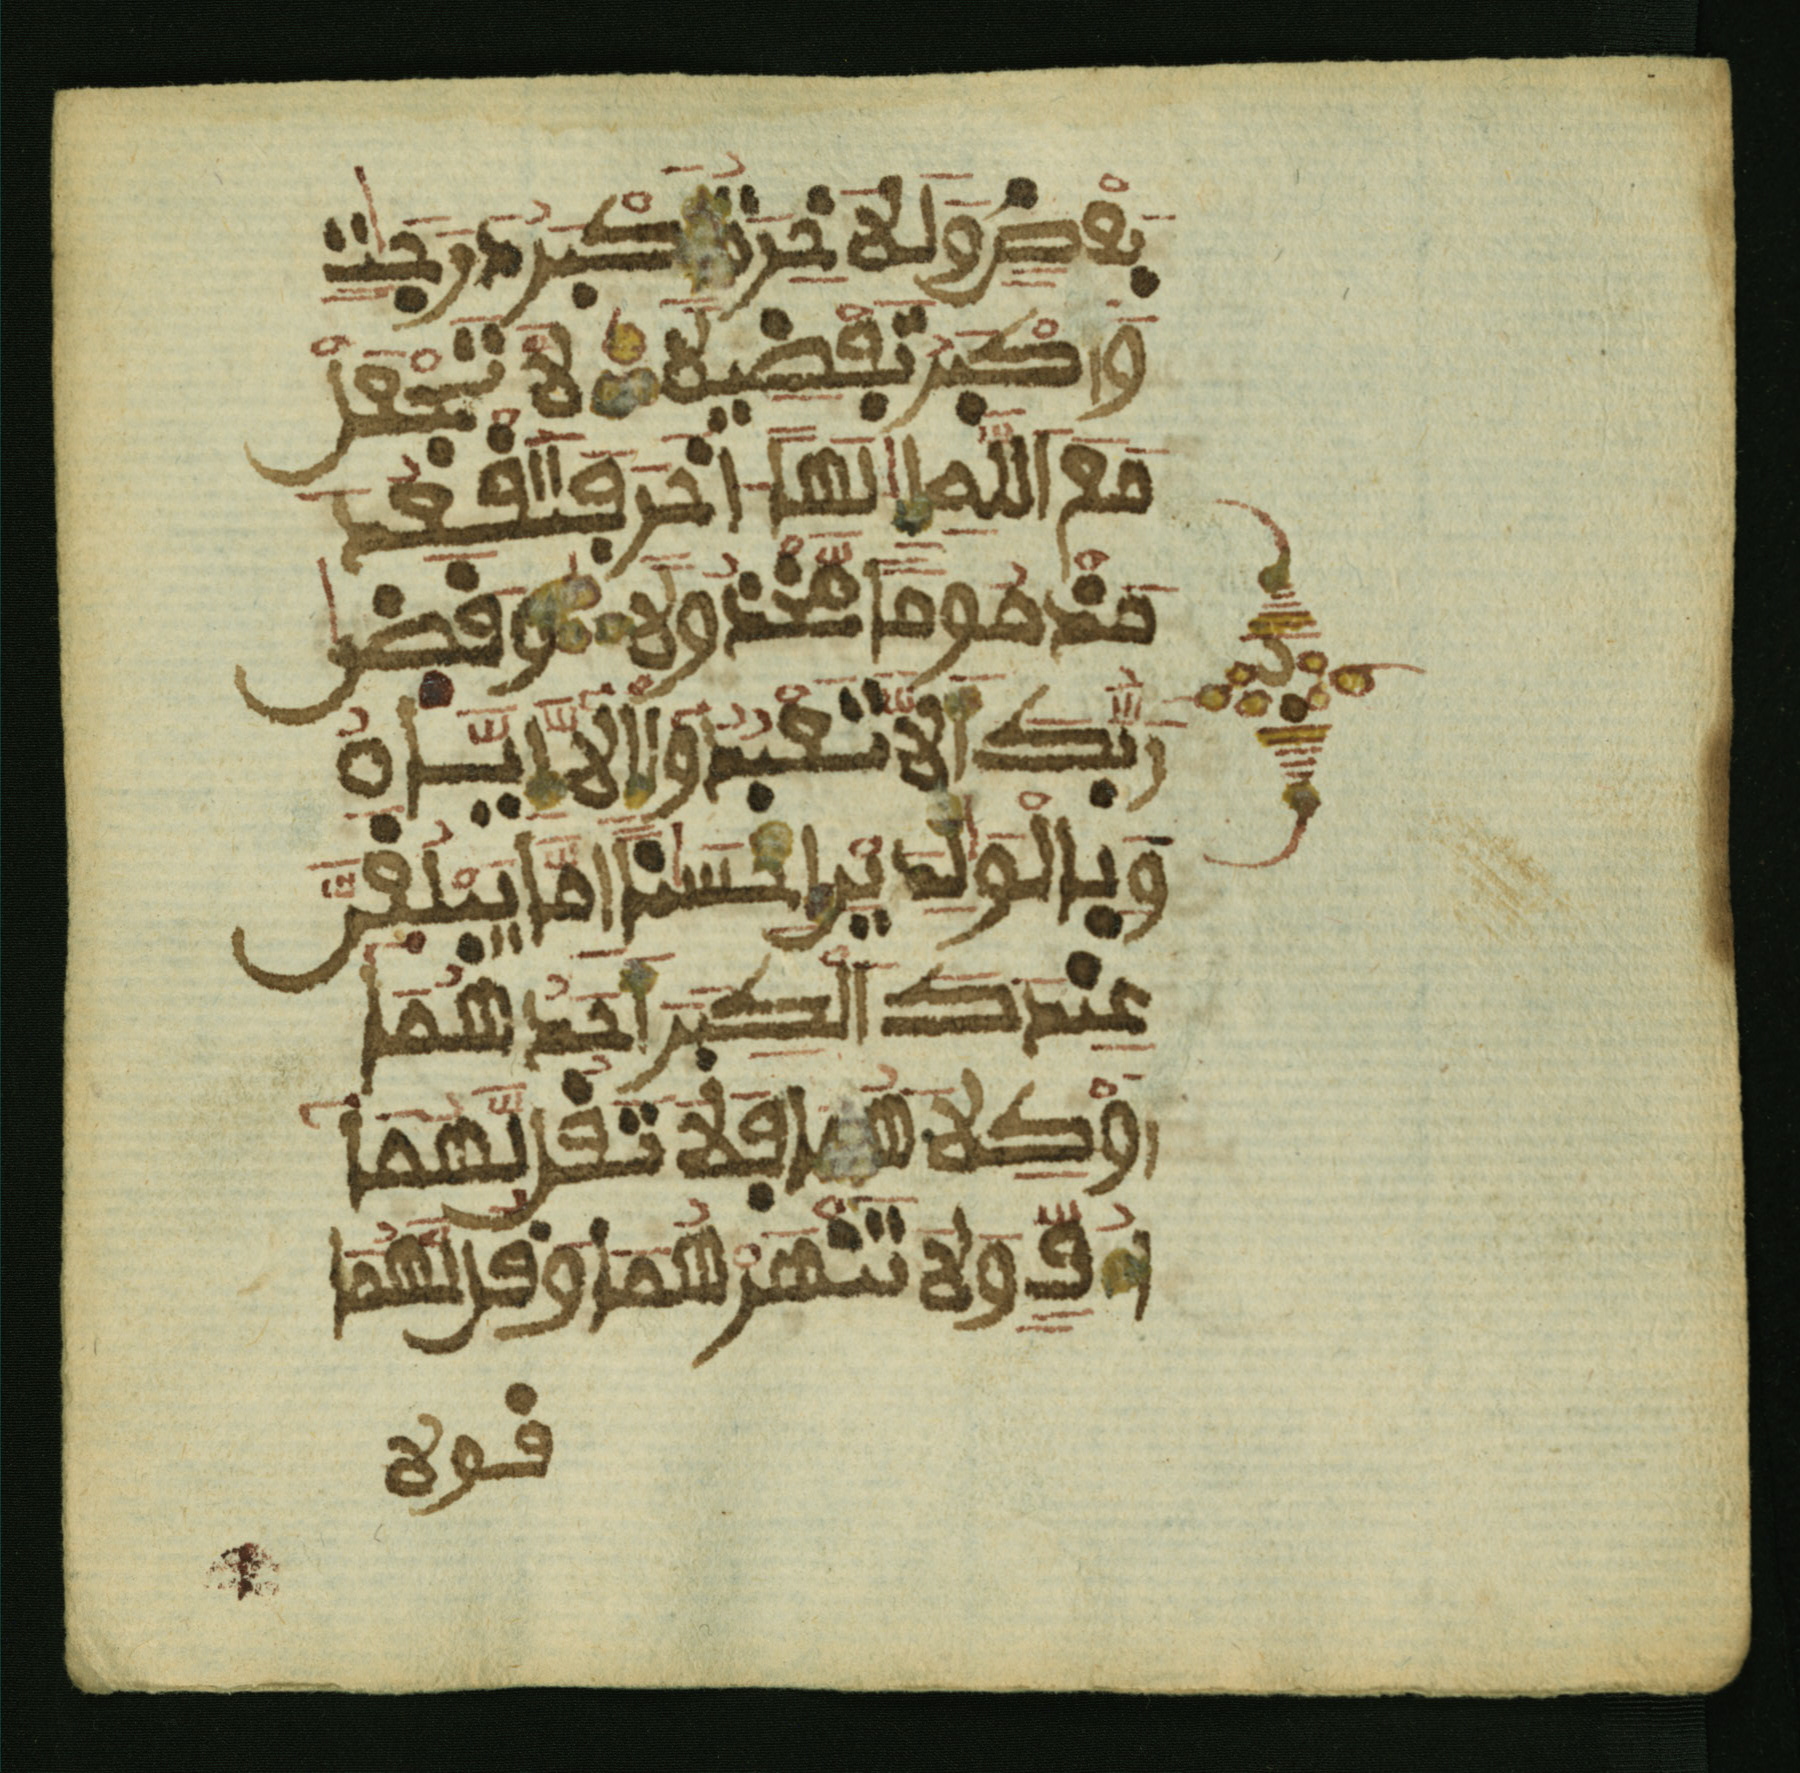 بعض وللاخرة اكبر درجت
واكبر تفضيلا لا تجعل
مع الله الها اخر فتقعد
مذموما مخذولا وقضى
ربك الا تعبدوا الا اياه
وبالولدين احسنا اما يبلغن
عندك الكبر احدهما
او كلاهما فلا تقل لهما
اف ولا تنهرهما وقل لهما
قولا